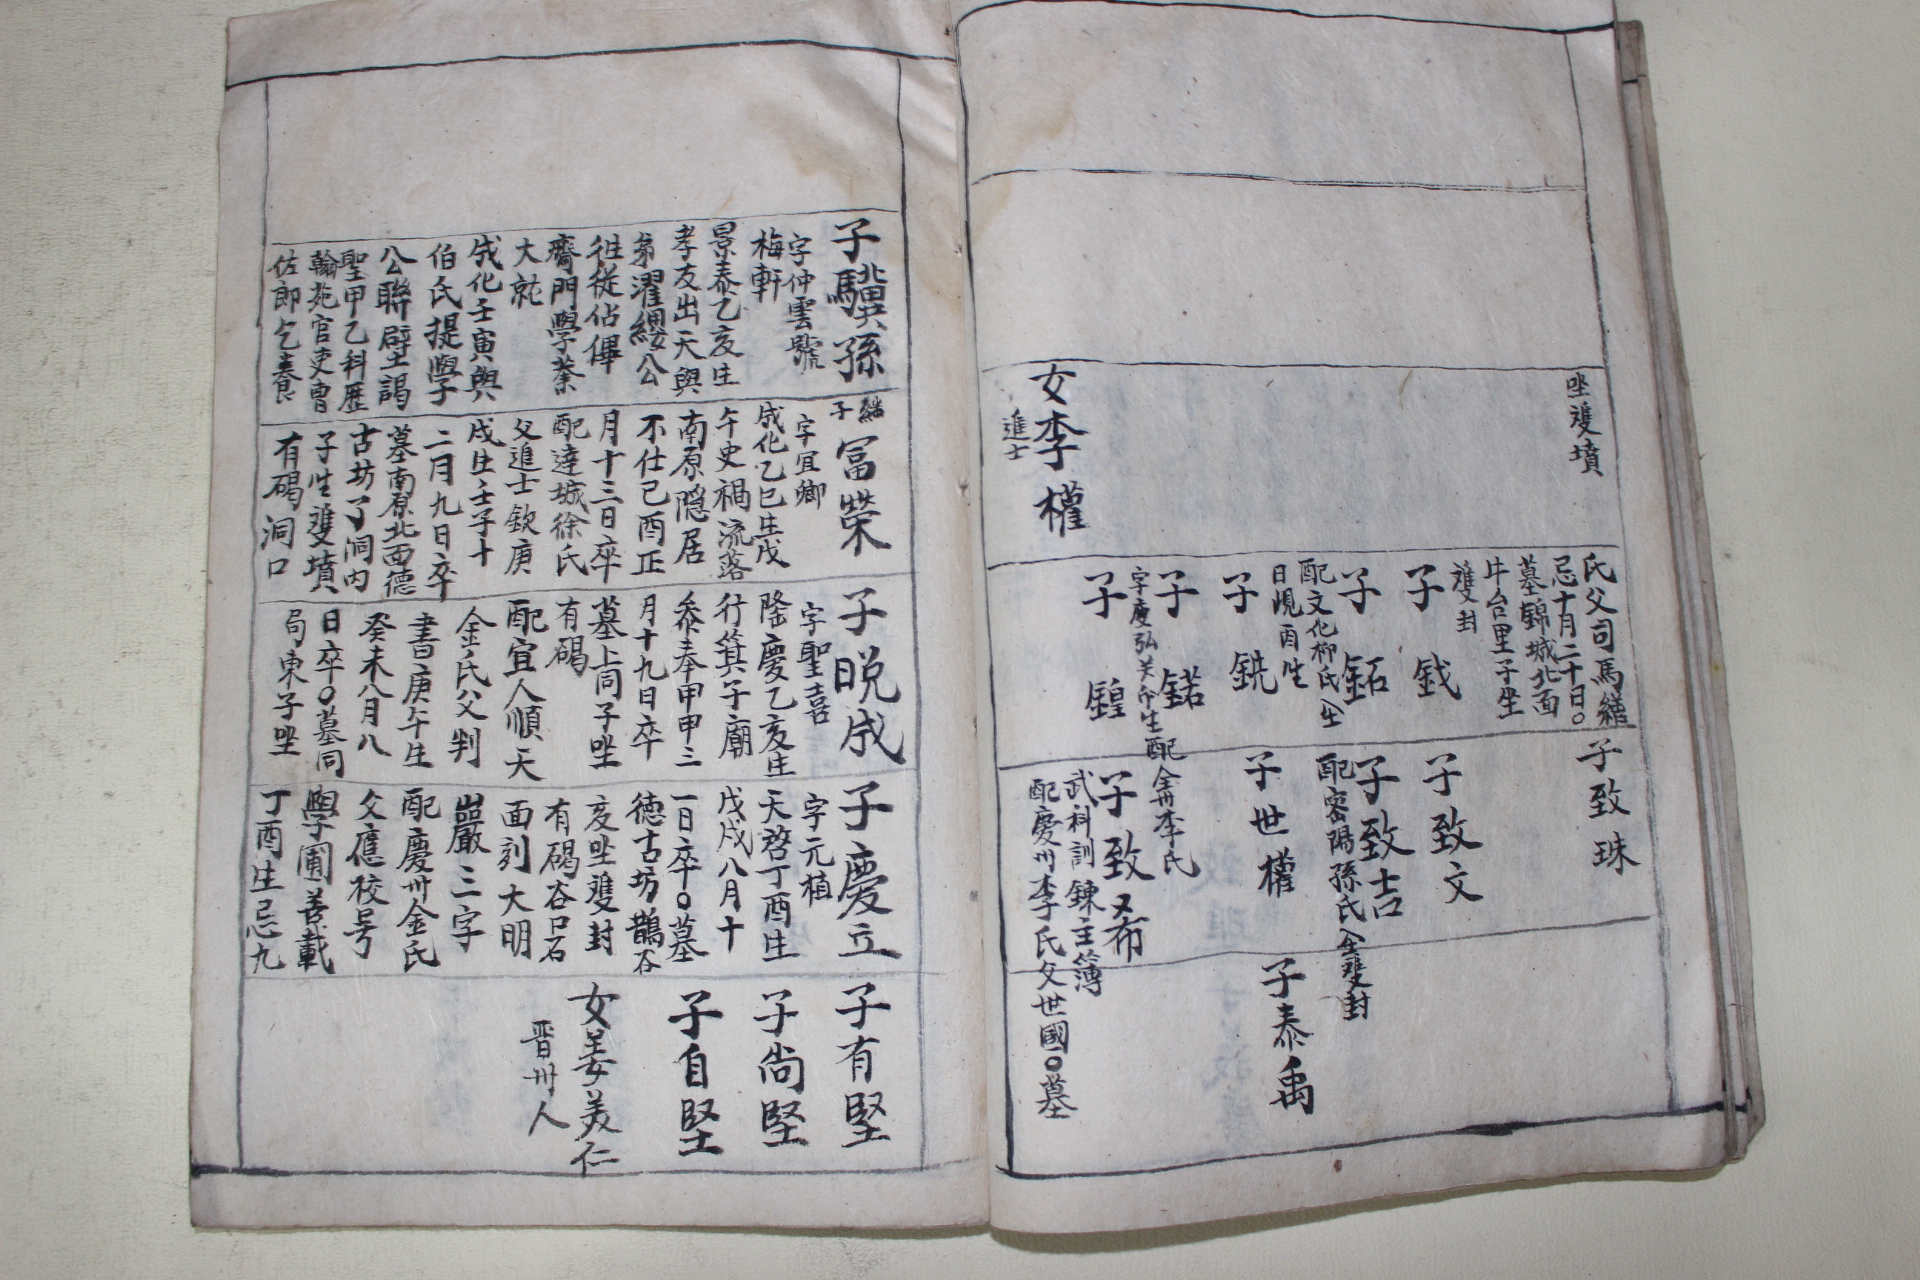 坐雙墳
女李權
進士
氏父司馬纘
忌十月二十日○
墓錦城北面
牛台里子坐
雙封
子 鉞
子 鉐
配文化柳氏父
日晛酉生
子 銑
子 鍩
字慶弘癸卯生配金海李氏
子 鍠
子致珠
子致文
子致吉
配密陽孫氏父雙封
子世權
子致希
武科訓鍊主簿
配慶州李氏父世國○墓
子泰禹
子驥孫
字仲雲號
梅軒
景泰乙亥生
孝友出天與
弟濯纓公
往從佔俾
齋門學業
大就
成化壬寅與
伯氏提學
公聯壁謁
聖甲乙科歷
翰苑官吏曹
佐郎乞養
繼子 冨榮
字宜卿
成化乙巳生戊
午史禍流落
南原隱居
不仕己酉正
月十三日卒
配達城徐氏
父進士欽庚
戌生壬子十
二月九日卒
墓南原北面德
古坊了洞內
子坐雙墳
有碣洞口
子晩成
字聖喜
隆慶乙亥生
行箕子廟
叅奉甲申三
月十九日卒
墓上同子坐
有碣
配宜人順天
金氏父判
書庚午生
癸未八月八
日卒○墓同
局東子坐
子慶立
字元植
天啓丁酉生
戊戌八月十
一日卒○墓
德古坊鵲谷
亥坐雙封
有碣谷口石
面刻大明
嵓巖三字
配慶州金氏
父應校号
學圃善載
丁酉生忌九
子有堅
子尙堅
子自堅
女姜美仁
晋州人